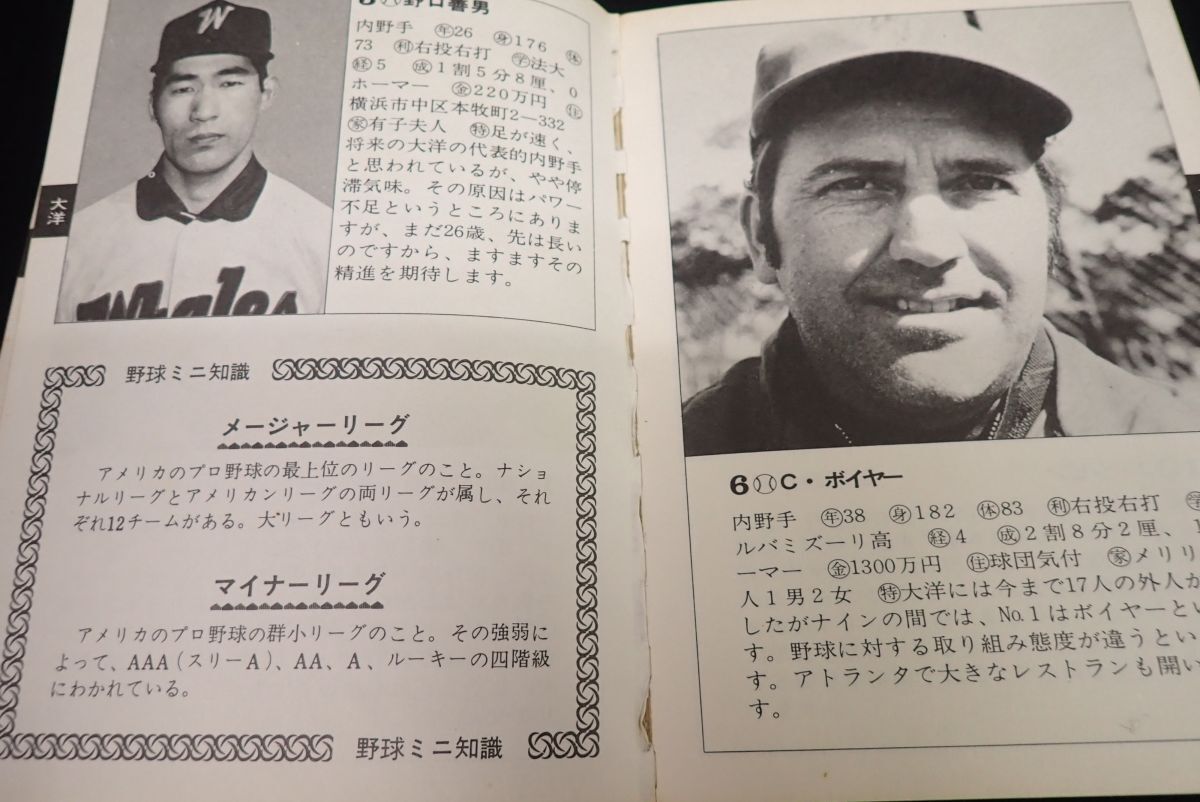 W
大洋
Whales
野口善男
内野手 年26 身176 体
73 利右投右打 学法大
経5 成1割5分8厘、0
ホーマー 金220万円 住
横浜市中区本牧町2―332
家有子夫人 特足が速く、
将来の大洋の代表的内野手
と思われているが、やや停
滞気味。その原因はパワー
不足というところにありま
すが、まだ26歳、先は長い
のですから、ますますその
精進を期待します。
野球ミニ知識
メージャーリーグ
アメリカのプロ野球の最上位のリーグのこと。ナショ
ナルリーグとアメリカンリーグの両リーグが属し、それ
ぞれ12チームがある。大リーグともいう。
マイナーリーグ
アメリカのプロ野球の群小リーグのこと。その強弱に
よって、AAA(スリーA)、AA、A、ルーキーの四階級
にわかれている。
野球ミニ知識
6 C・ボイヤー
内野手 年38 身182 体83 利右投右打 学
ルバミズーリ高 経4 成2割8分2厘、1
ーマー 金1300万円 住球団気付 家メリリ
人1男2女 特大洋には今まで17人の外人が
したがナインの間では、No.1はボイヤーとい
す。野球に対する取り組み態度が違うとい
す。アトランタで大きなレストランも開い
す。